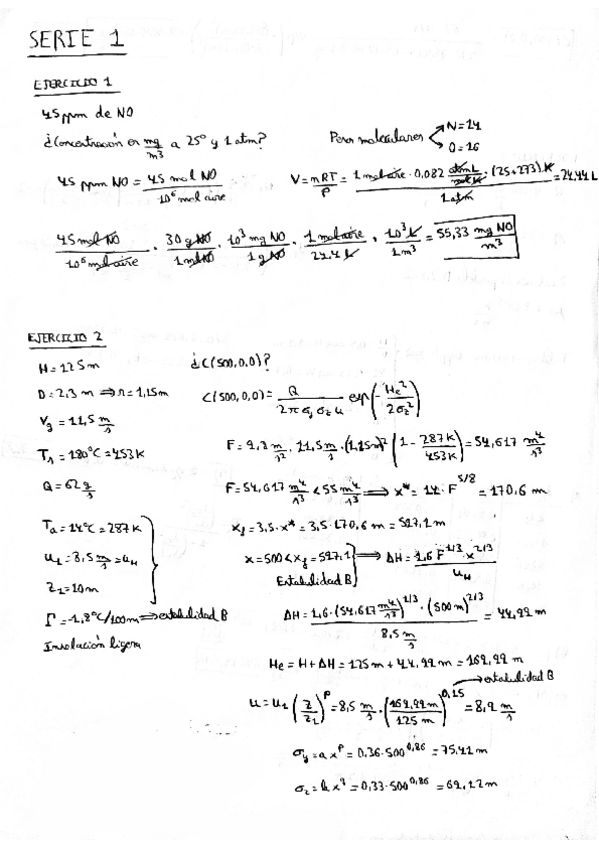 SERIE 1
EJERCICIO 1
45 ppm de NO
¿Concentración en mg/m³ a 25º y 1 atm?
Pesos moleculares N=14 O=16
45 ppm NO = 45 mol NO / 10⁶ mol aire
V = nRT/P = 1 mol aire · 0,082 atm L/mol K · (25+273) K / 1 atm = 24,44 L
45 mol NO / 10⁶ mol aire · 30 g NO / 1 mol NO · 10³ mg NO / 1 g NO · 1 mol aire / 24,4 L · 10³ L / 1 m³ = 55,33 mg NO / m³
EJERCICIO 2
H = 125 m
D = 2,3 m ⟹ r = 1,15 m
V_s = 11,5 m/s
T_s = 180ºC = 453 K
Q = 62 g/s
T_a = 14ºC = 287 K
u_1 = 8,5 m/s = u_H
z_1 = 10 m
Γ = -1,8ºC/100m ⟹ estabilidad B
Insolación ligera
¿C(500,0,0)?
C(500,0,0) = Q / 2π σ_y σ_z u exp(- H_e² / 2σ_z²)
F = 9,8 m/s² · 11,5 m/s · (1,15 m)² (1 - 287 K / 453 K) = 54,617 m⁴/s³
F = 54,617 m⁴/s³ < 55 m⁴/s³ ⟹ x* = 14 · F^5/8 = 170,6 m
x_f = 3,5 · x* = 3,5 · 170,6 m = 597,1 m
x = 500 < x_f = 597,1 Estabilidad B ⟹ ΔH = 1,6 F^1/3 x^2/3 / u_H
ΔH = 1,6 · (54,617 m⁴/s³)^1/3 · (500 m)^2/3 / 8,5 m/s = 44,99 m
He = H + ΔH = 125 m + 44,99 m = 169,99 m
→ estabilidad B
u = u_1 (z/z_1)^p = 8,5 m/s · (169,99 m / 125 m)^0,15 = 8,9 m/s
σ_y = a x^p = 0,36 · 500^0,86 = 75,41 m
σ_z = b x^q = 0,33 · 500^0,86 = 69,12 m